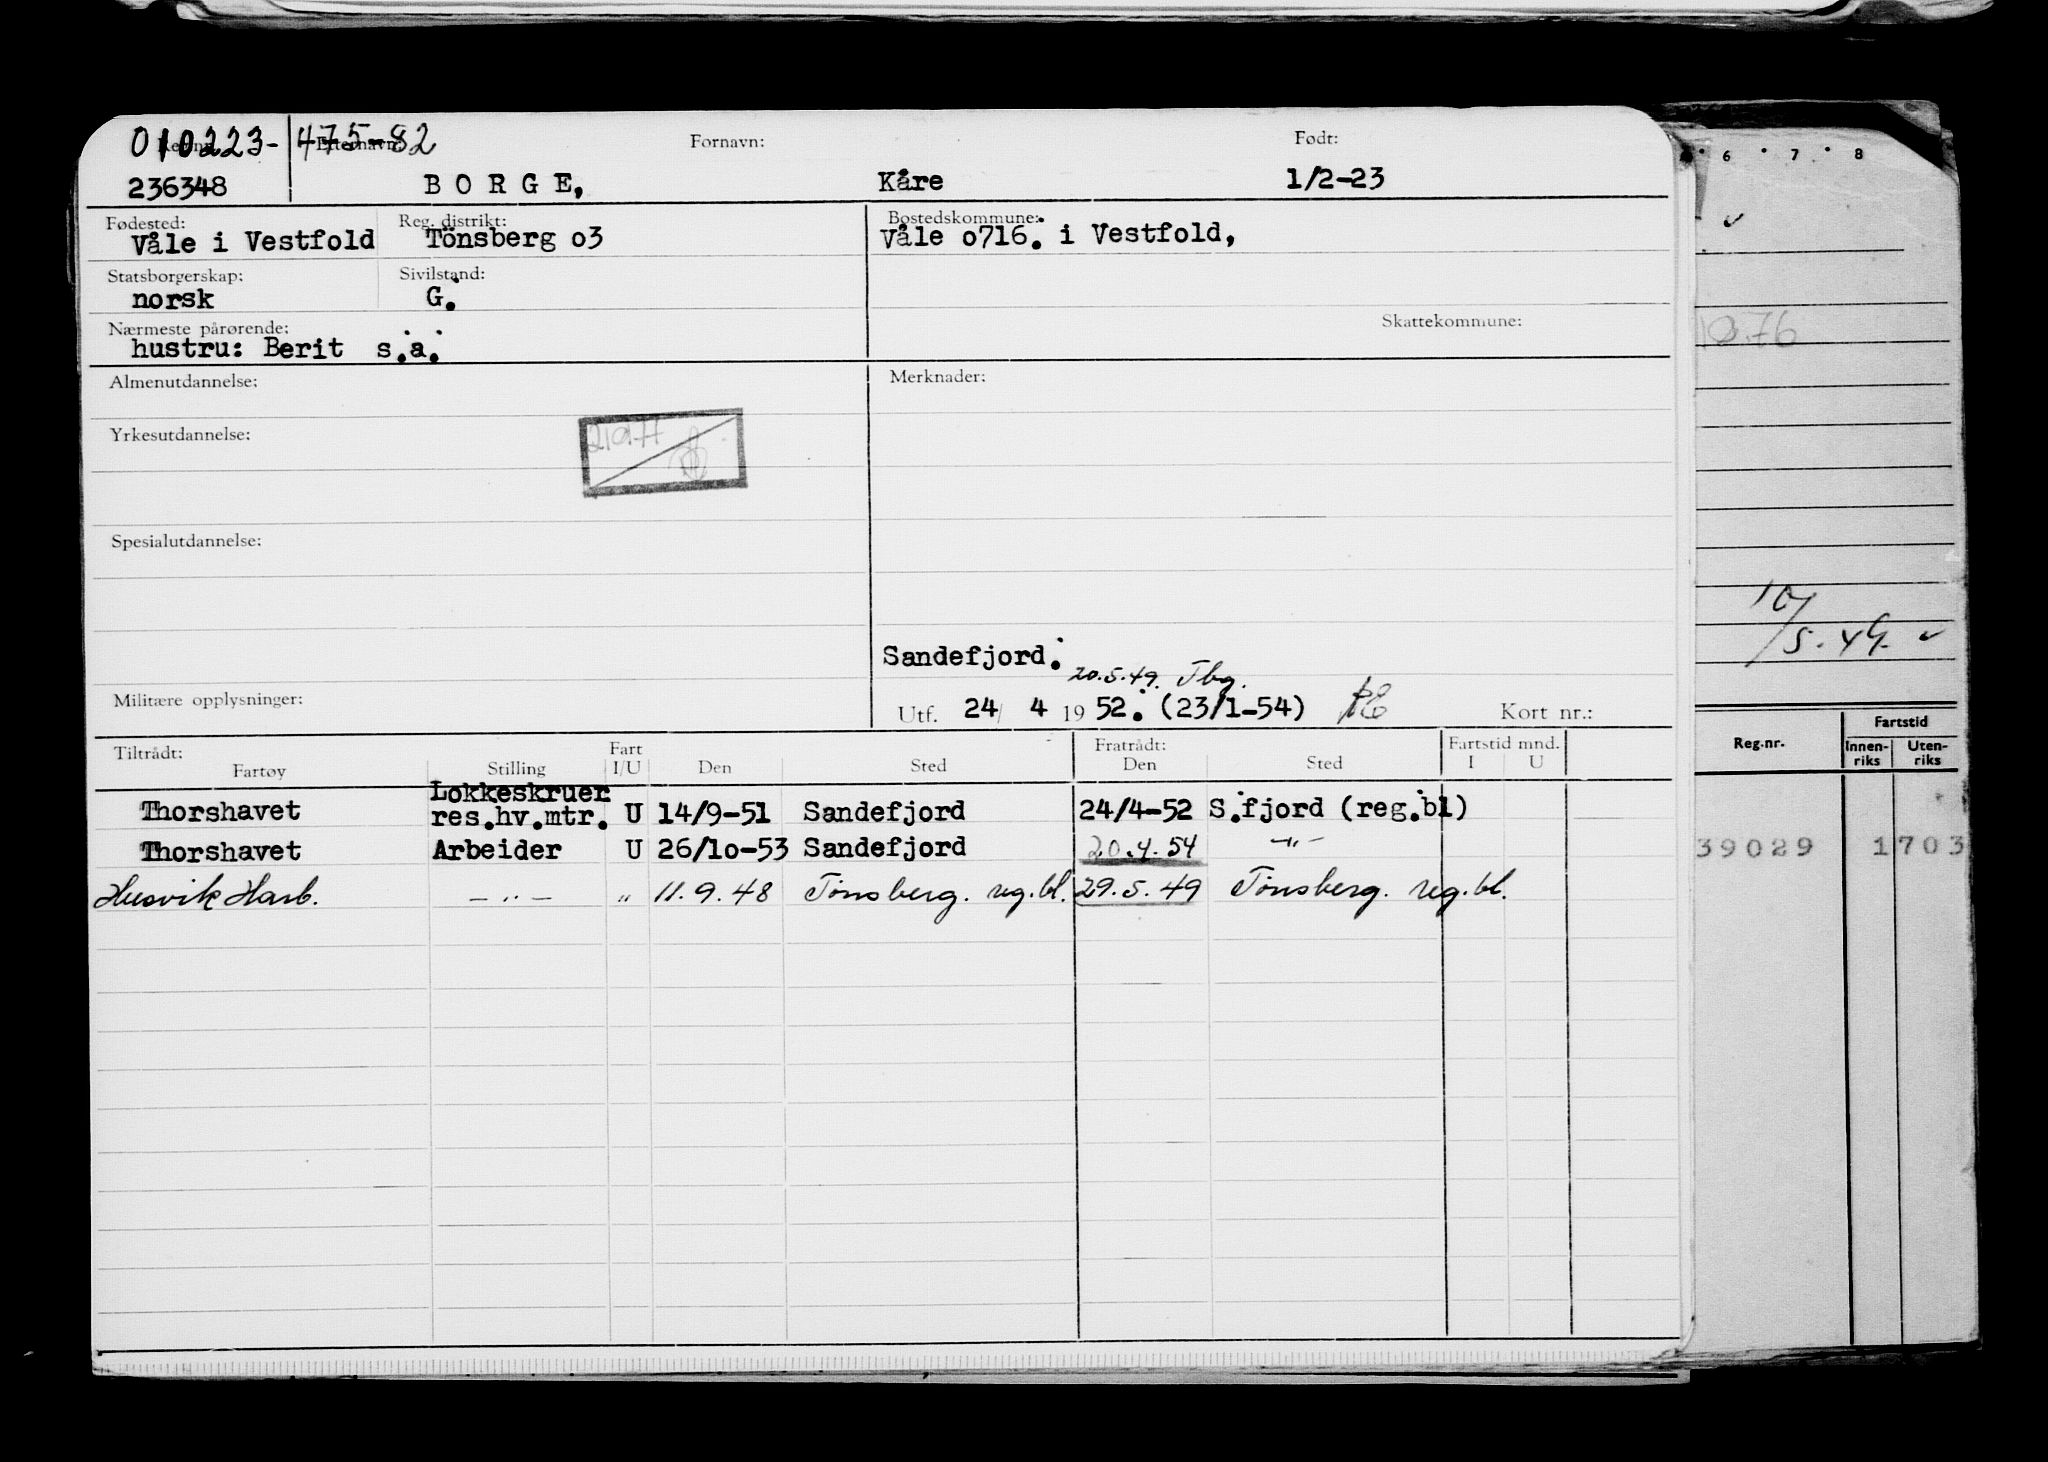 010223-47582
Reg.nr. Etternavn: Fornavn: Født:
236348 BORGE, Kåre 1/2-23
Fødested: Reg. distrikt: Bostedskommune:
Våle i Vestfold Tönsberg o3 Våle o716. i Vestfold,
Statsborgerskap: Sivilstand:
norsk G.
Nærmeste pårørende: Skattekommune:
hustru: Berit s.a.
Almenutdannelse: Merknader:
Yrkesutdannelse:
Spesialutdannelse:
Sandefjord.
20.5.49. Tbg.
Militære opplysninger: Utf. 24/ 4 19 52. (23/1-54) Kort nr.:
Tiltrådt: Fratrådt: Fartstid mnd.
Fartøy Stilling Fart I/U Den Sted Den Sted I U
Lokkeskruer
Thorshavet res.hv.mtr. U 14/9-51 Sandefjord 24/4-52 S.fjord (reg.bl)
Thorshavet Arbeider U 26/1o-53 Sandefjord 20.4.54 -"-
Husvik Harb. -"- " 11.9.48 Tønsberg. reg.bl. 29.5.49 Tønsberg. reg.bl.
6 7 8
1976
10/5.49.
Reg.nr. Fartstid
Innen-riks Uten-riks
39029 1703